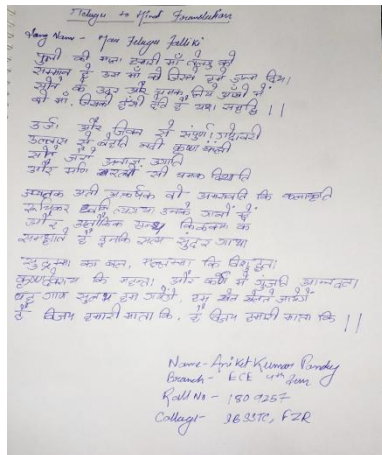 Telugu to Hindi Translation
Song Name - Maa Telugu Talliki
फूलों की माला हमारी माँ तेलुगु को
सम्मान है उस माँ को जिसने हमें जन्म दिया।
सोने के उदर और चमक लिये आँखों में
वो माँ जिसकी हँसी होती है धन समृद्धि ||
उर्जा और जिवन से संपूर्ण गोदावरी
उल्लास से बेहति चली कृष्णा
सोने जैसे
और मणि मोती सी चमक दिखाति
अत्यंत अती आकर्षक वो अमरावति कि कलाकृति
रुचिकर ध्वनि त्यागय्या उनके गानों में
और अलौकिक
समझाते है इनकि सत्य सुंदर गाथा
रुद्रम्मा का बल, मल्लम्मा कि
कृष्णदेवराय कि महत्ता और कर्ण में गूंजति
यह गान सुनकर हम गायेंगे, हम खेल खेलते जायेंगे
है विजय हमारी माता कि, है विजय हमारी माता कि ||
Name - Aniket Kumar Pandey
Branch - ECE 4th Sem
Roll No - 1809257
College - SBSSTC, FZR